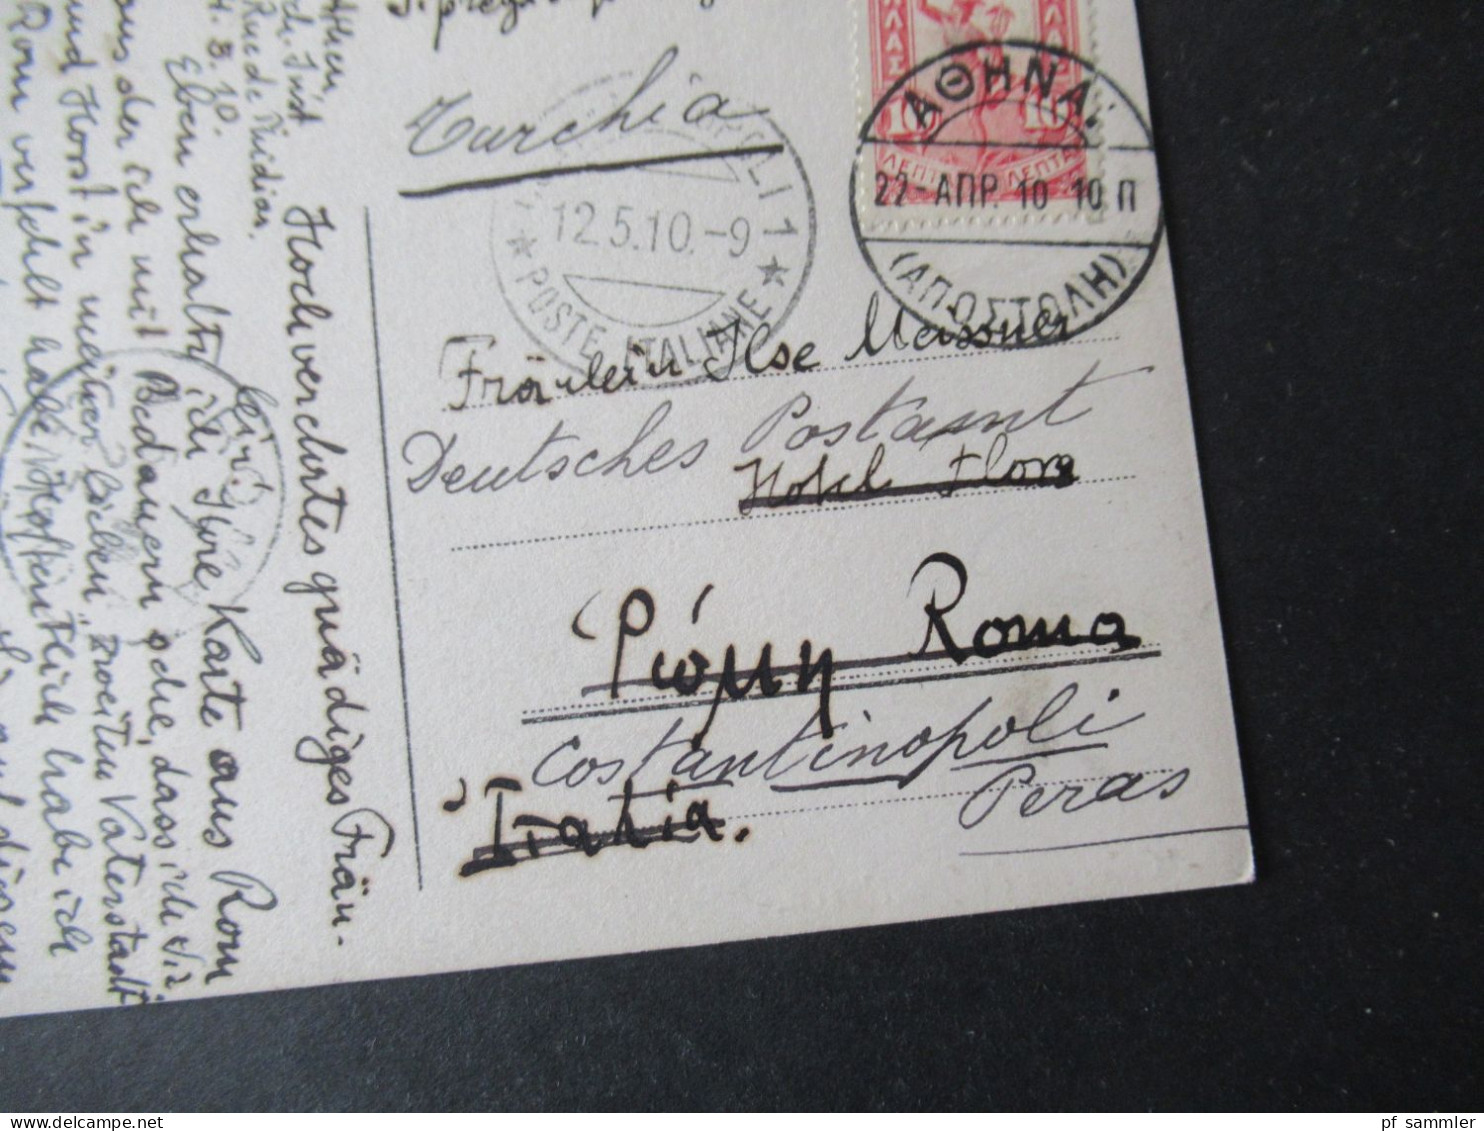 Turchia
ΑΘΗΝΑΙ
22-ΑΠΡ. 10 10 Π
(ΑΠΟΣΤΟΛΗ)
10 10
ΛΕΠΤΑ ΛΕΠΤΑ
POLI 1
12.5.10.-9
★ POSTE ITALIANE ★
Fräulein Ilse Meissner
Deutsches Postamt
Hotel Flora
Ρώμη Roma
Costantinopoli
Peras
Italia.
Athen,
Inst
Rue de Phidias.
4. 5. 10.
Hochverehrtes gnädiges Fräu-
lein!
Eben erhalte ich Ihre Karte aus Rom
aus der ich mit Bedauern sehe, dass ich Sie
und Horst in meiner lieben "zweiten Vaterstadt
Rom verfehlt habe. Hoffentlich habe ich
pf_sammler